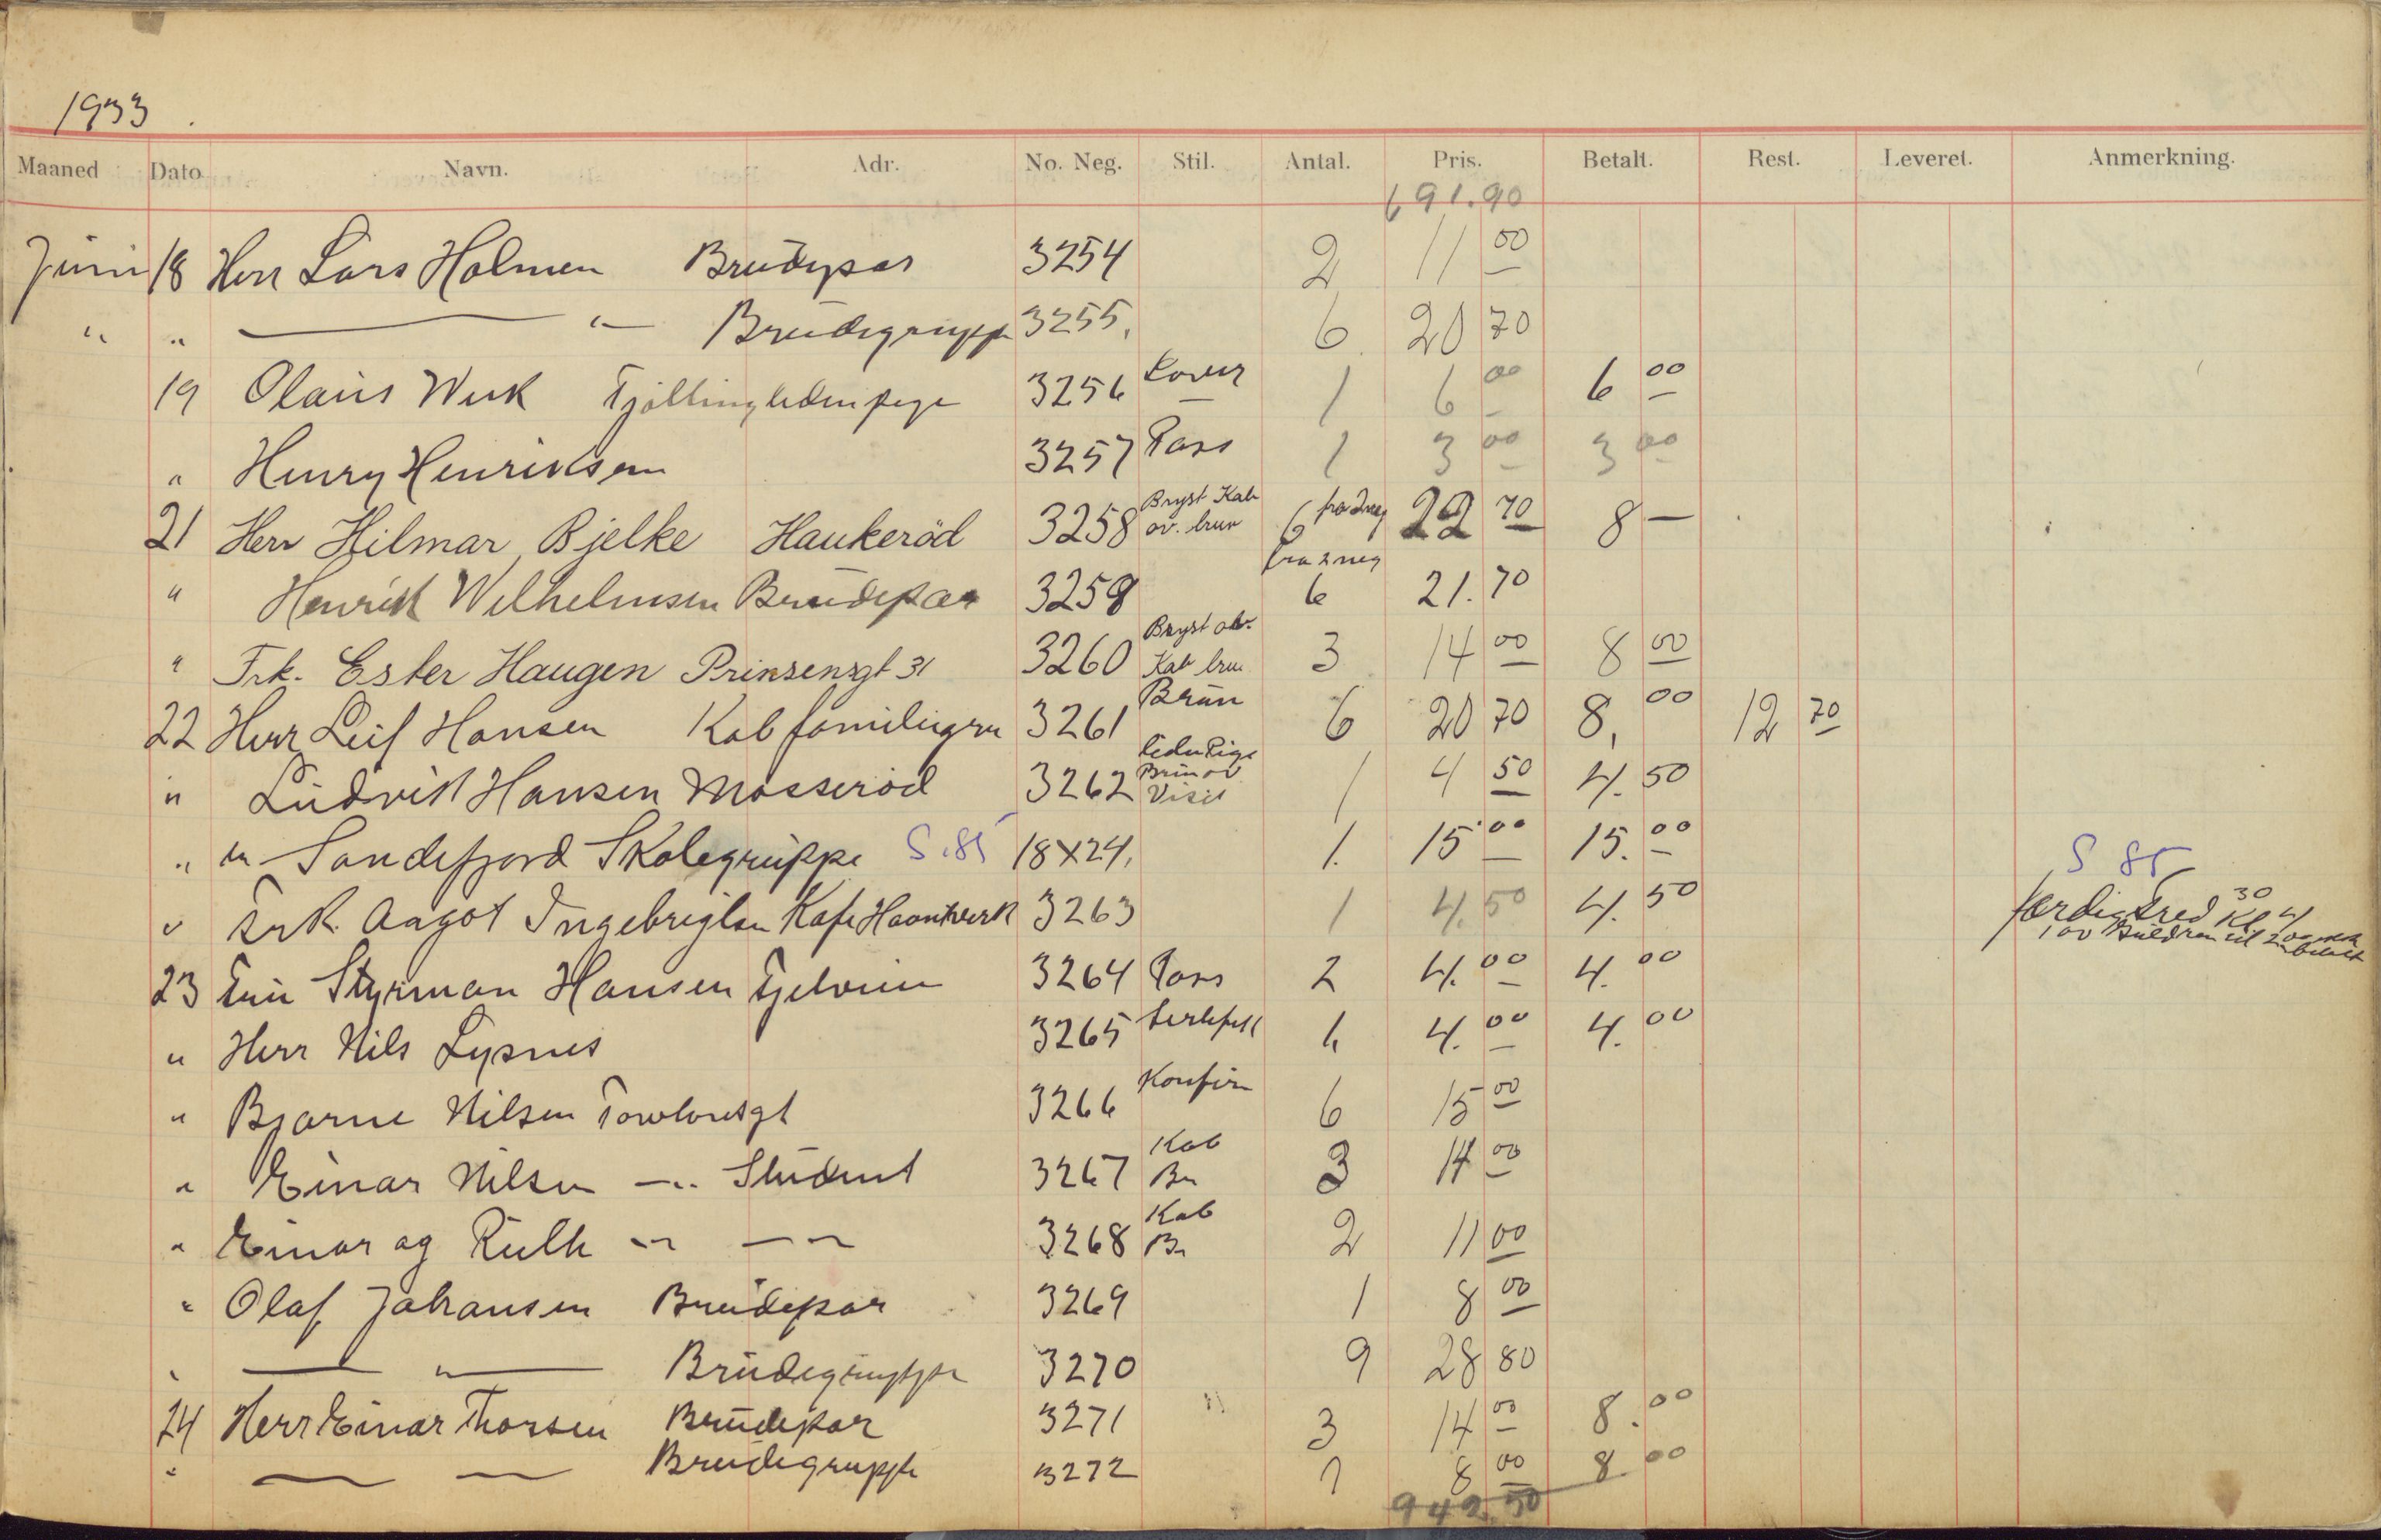 1933.
Maaned Dato Navn. Adr. No. Neg. Stil. Antal. Pris. Betalt. Rest. Leveret. Anmerkning.
691.90
Juni 18 Herr Lars Holmen Brudepar 3254 2 11 00
" " — " — Brudegruppe 3255. 6 20 70
19 Olaus Wiik Tjølling 3256 1 6 00 6 00
" Henry Henriksen 3257 Pass 1 3 00 3 00
21 Herr Hilmar Bjelke Haukeröd 3258 Bryst Kab ov. brun 6 fra 2 neg 22 70 8 —
" Henrik Wilhelmsen Brudepar 3259 6 fra 2 neg 21.70
" Frk. Ester Haugen Prinsensgt 31 3260 Bryst ov. Kab brun 3 14 00 8 00
22 Herr Leif Hansen Kab familiegru 3261 Brun 6 20 70 8, 00 12 70
" Ludvik Hansen Mosseröd 3262 Brun ov Visit 1 4 50 4. 50
" Sandefjord Skolegruppe S. 85 18X24. 1. 15 00 15. 00 S 85
" Frk. Aagot Ingebrigtsen Kafe Haanverk 3263 1 4. 50 4. 50 færdig Fred Kl 4 30
23 Fru Styrman Hansen Fjelvim 3264 Pass 2 4. 00 4. 00
" Herr Nils Lysnes 3265 6 4. 00 4. 00
" Bjarne Nilsen 3266 Konfir 6 15 00
" Einar Nilsen —"— Student 3267 Kab Br 3 14 00
" Einar og Ruth —"— —"— 3268 Kab Br 2 11 00
" Olaf Johansen Brudepar 3269 1 8 00
" — " — Brudegruppe 3270 9 28 80
24 Herr Einar Thorsen Brudepar 3271 3 14 00 8. 00
" — — Brudegruppe 3272 1 8 00 8. 00
942.50